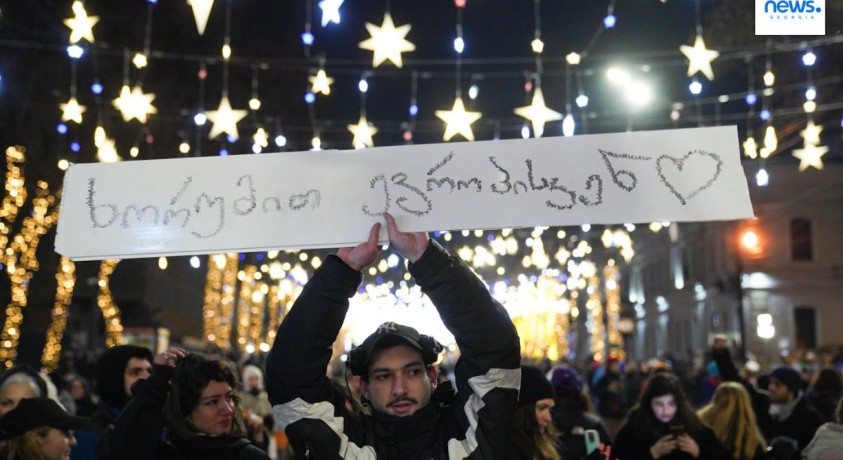 news.
GEORGIA
ხორუმით ევროპისკენ